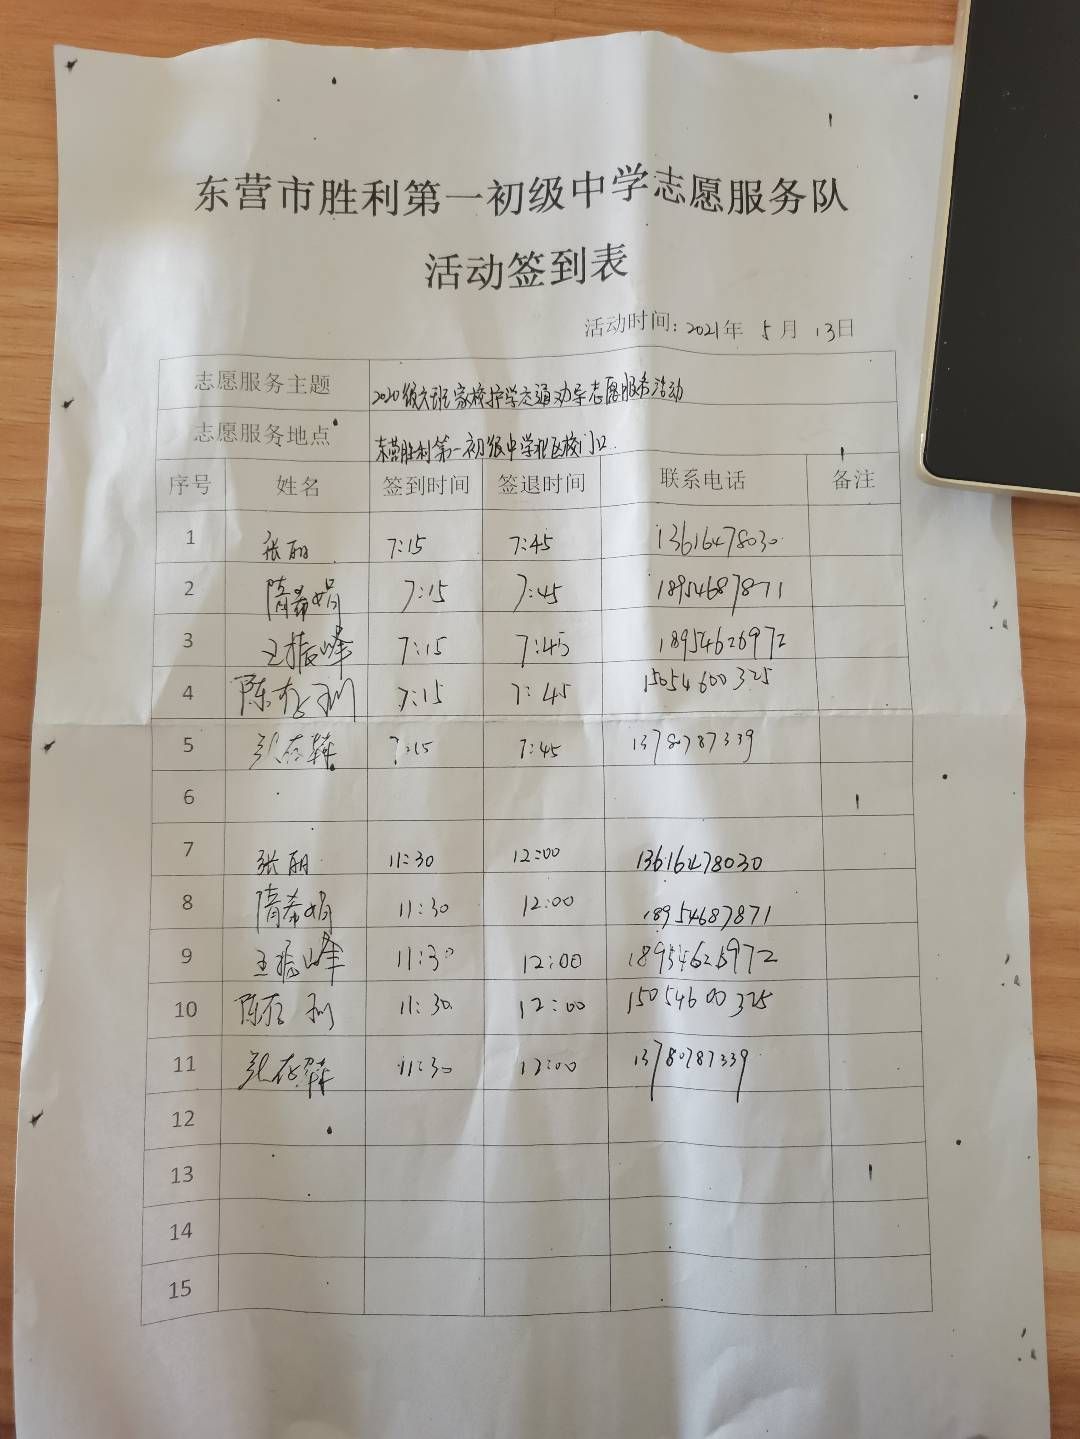 东营市胜利第一初级中学志愿服务队
活动签到表
活动时间：2021年 5月 13日
志愿服务主题 2020级六班家校护学交通劝导志愿服务活动
志愿服务地点 东营胜利第一初级中学北区校门口
序号 姓名 签到时间 签退时间 联系电话 备注
1 张丽 7:15 7:45 13616478030
2 隋希娟 7:15 7:45 18954687871
3 王振峰 7:15 7:45 18954626972
4 陈存利 7:15 7:45 15054600325
5 7:15 7:45 13780787339
6
7 张丽 11:30 12:00 13616478030
8 隋希娟 11:30 12:00 18954687871
9 王振峰 11:30 12:00 18954626972
10 陈存利 11:30 12:00 15054600325
11 11:30 12:00 13780787339
12
13
14
15